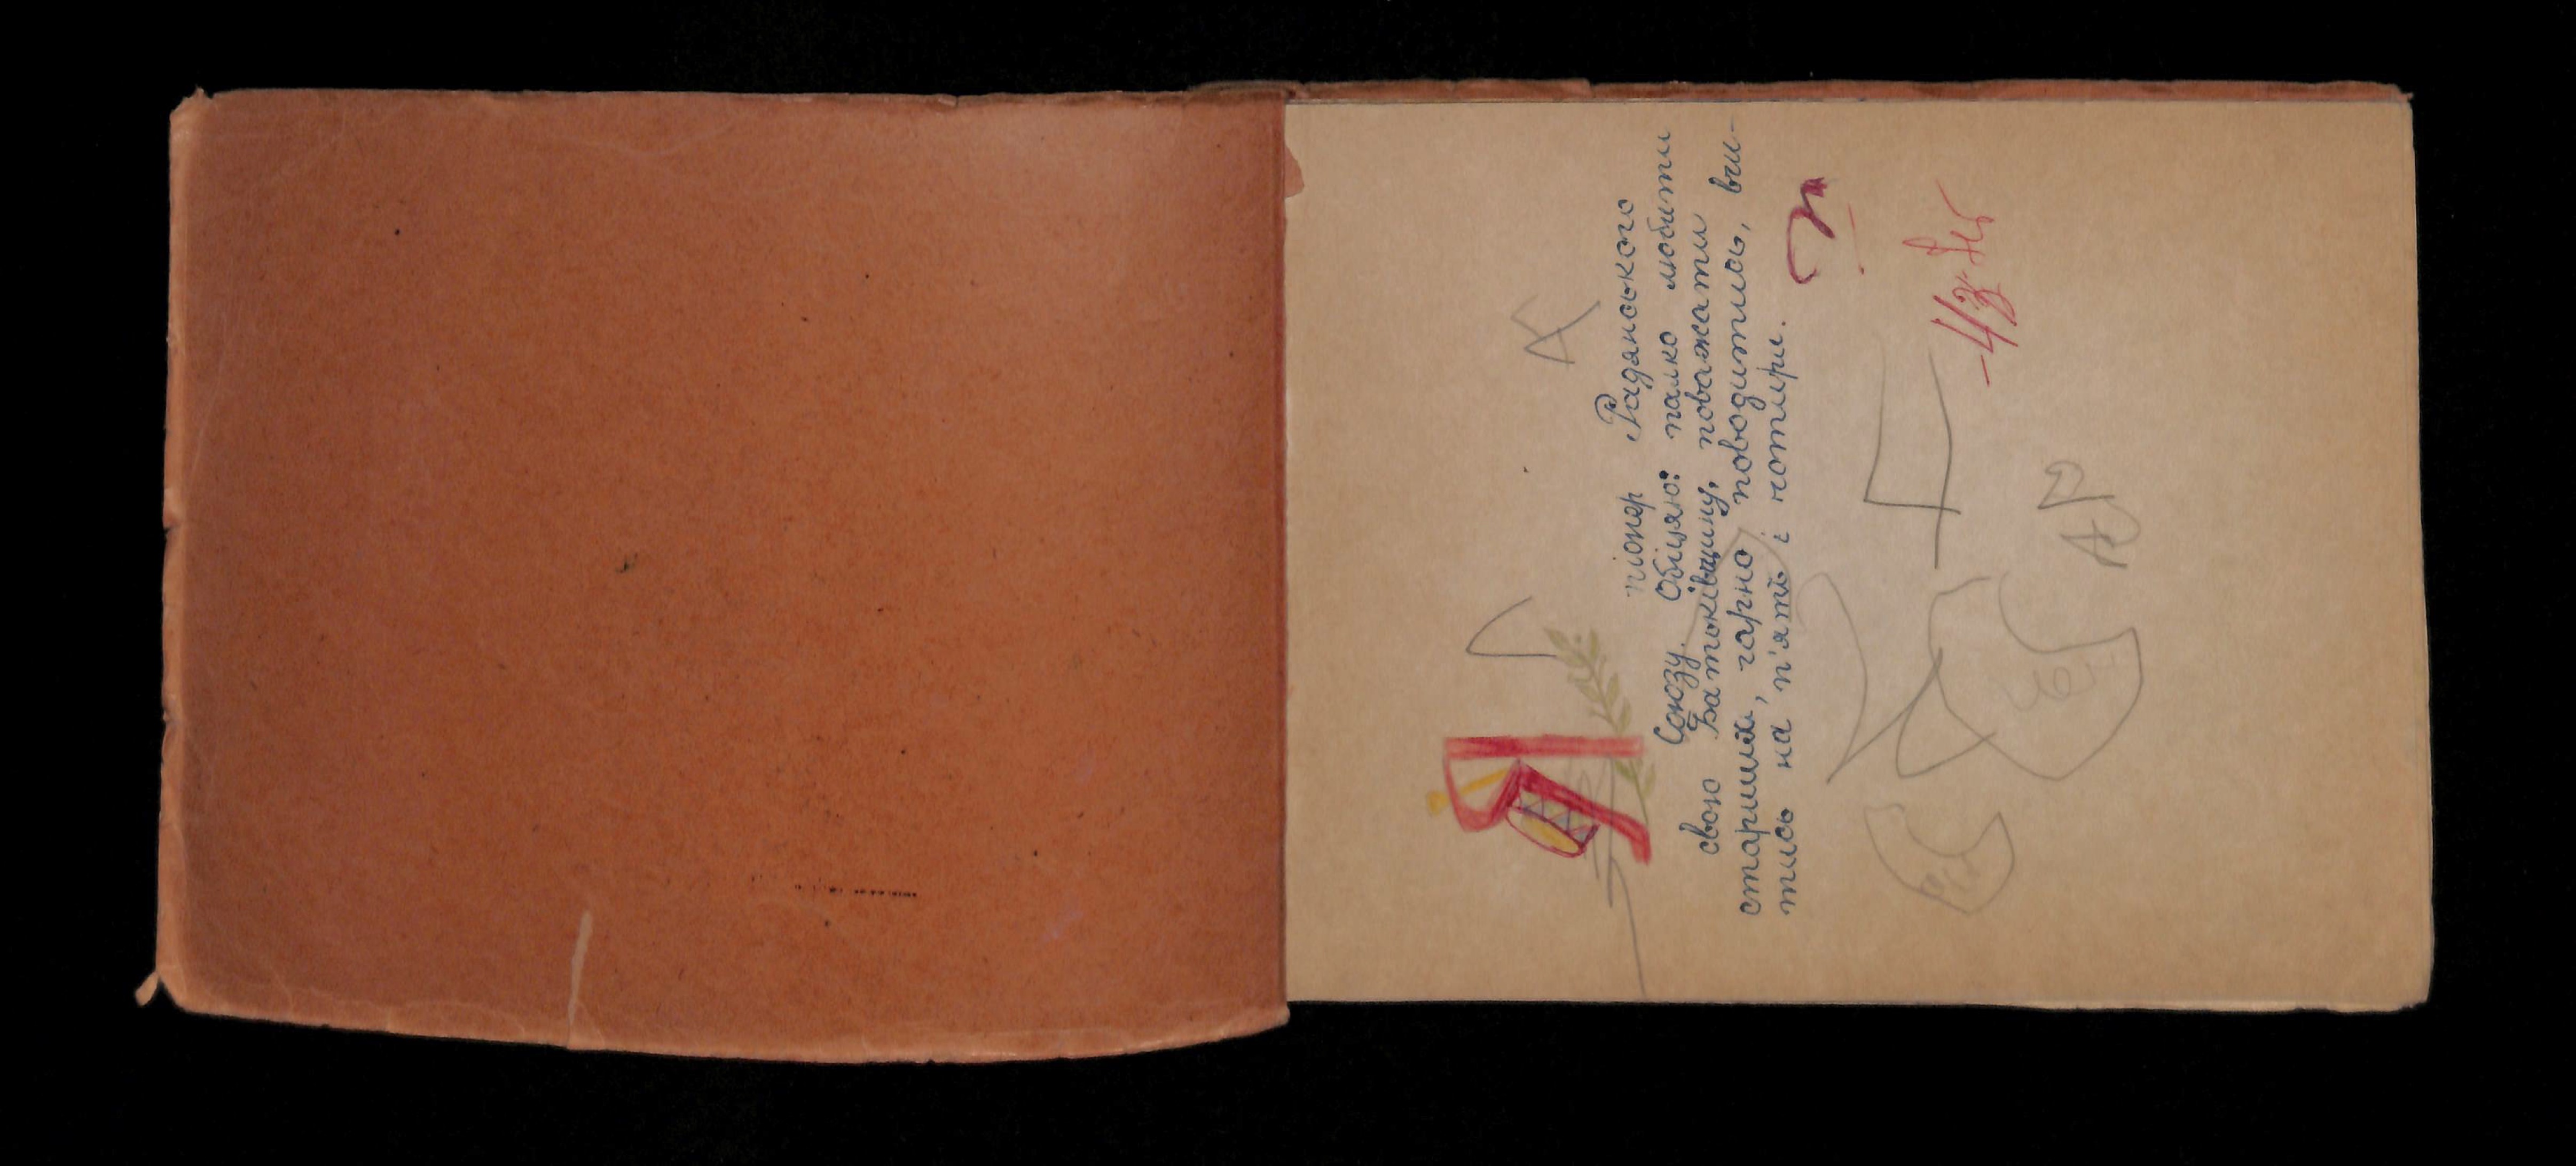 Я піонер Радянського
Союзу. Обіцяю: палко любити
свою Батьківщину, поважати
старших, гарно поводитись, вчи-
тись на п'ять і чотири.